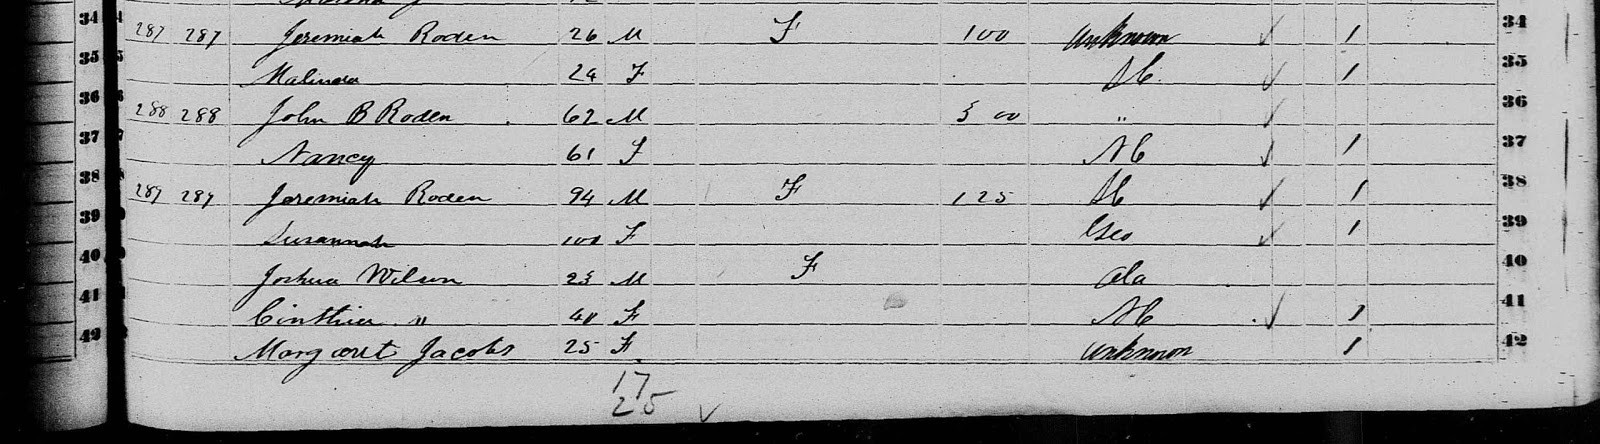 34 287 287 Jeremiah Roden 26 M F 100 unknown ✓ 1 34
35 Malinda 24 F ✓ 1 35
36 288 288 John B Roden 62 M 00 " ✓ 36
37 Nancy 61 F NC ✓ 1 37
38 289 289 Jeremiah Roden 94 M F 125 ✓ 1 38
39 Susannah 100 F Geo ✓ 1 39
40 Joshua Wilson 23 M F Ala 40
41 Cinthia " 40 F NC ✓ 1 41
42 Margaret Jacobs 25 F unknown 1 42
17
25 ✓